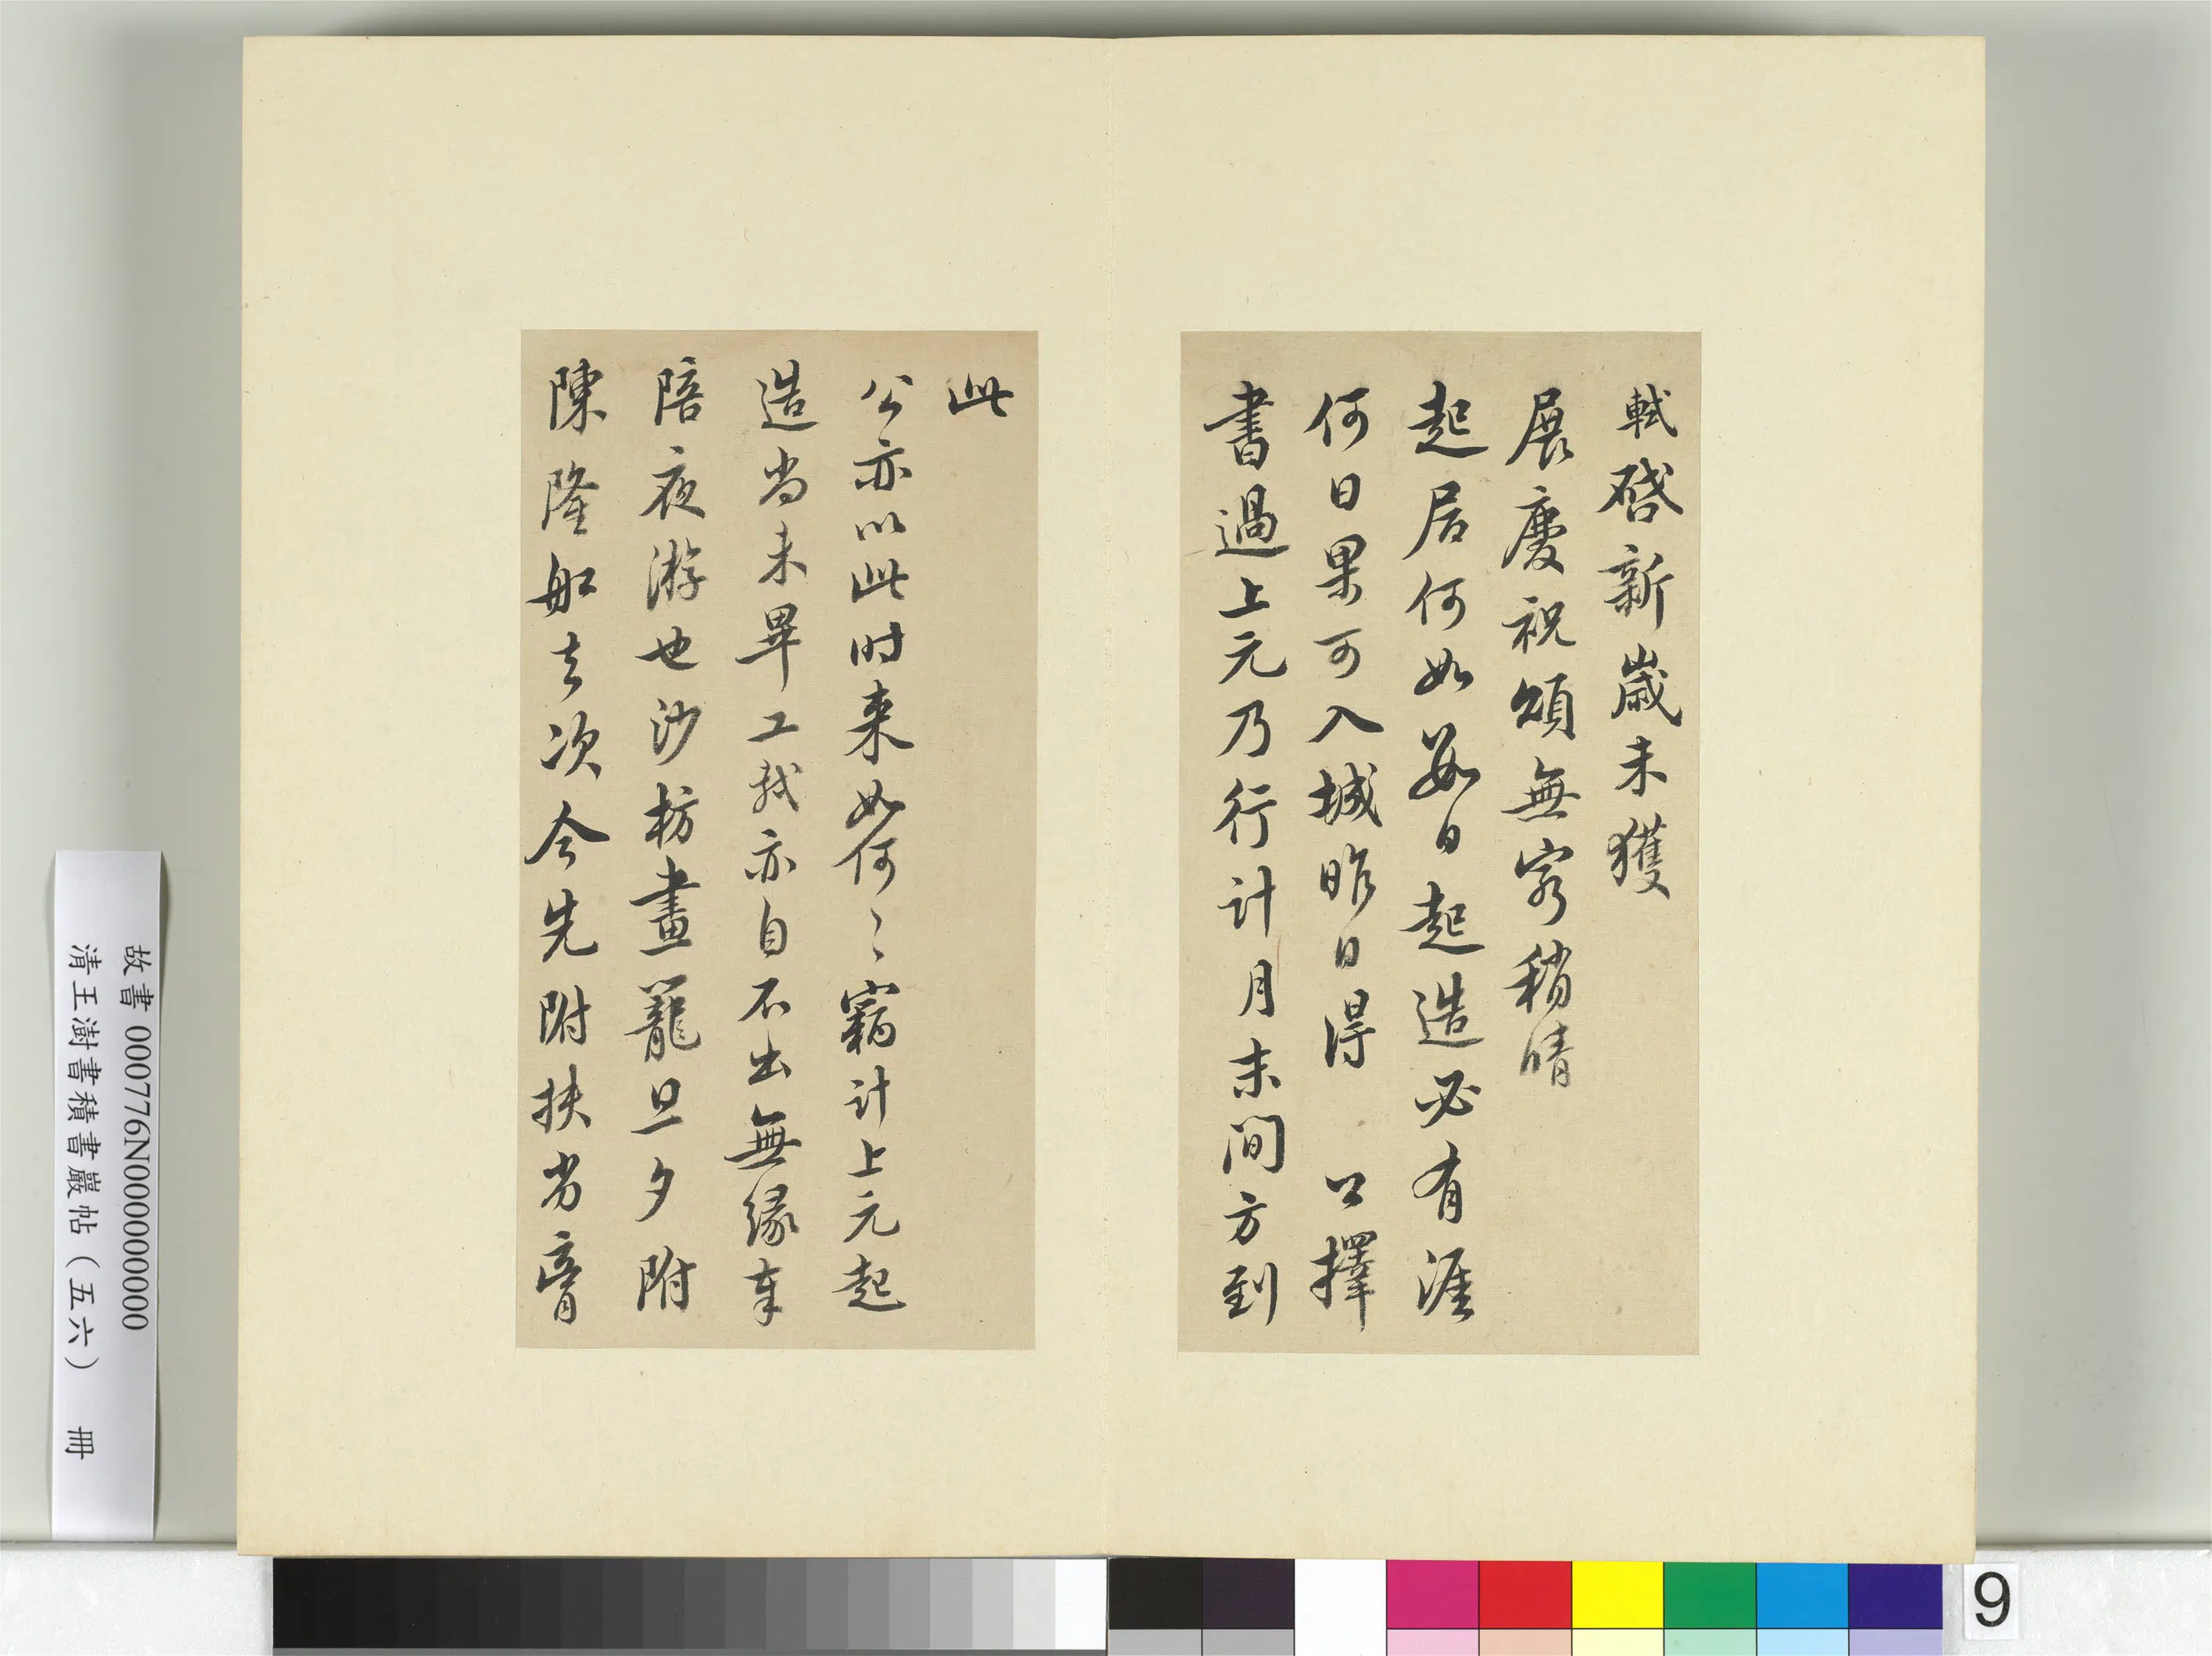 軾啓新歲未獲
展慶祝頌無窮稍晴
起居何如數日起造必有涯
何日果可入城昨日得 公擇
書過上元乃行計月末間方到
此
公亦以此时来如何〻竊計上元起
造尚未畢工軾亦自不出無緣奉
陪夜游也沙枋畫籠旦夕附
陳隆船去次今先附扶劣膏
故書 000776N000000000
清王澍書積書巖帖（五六） 冊
9